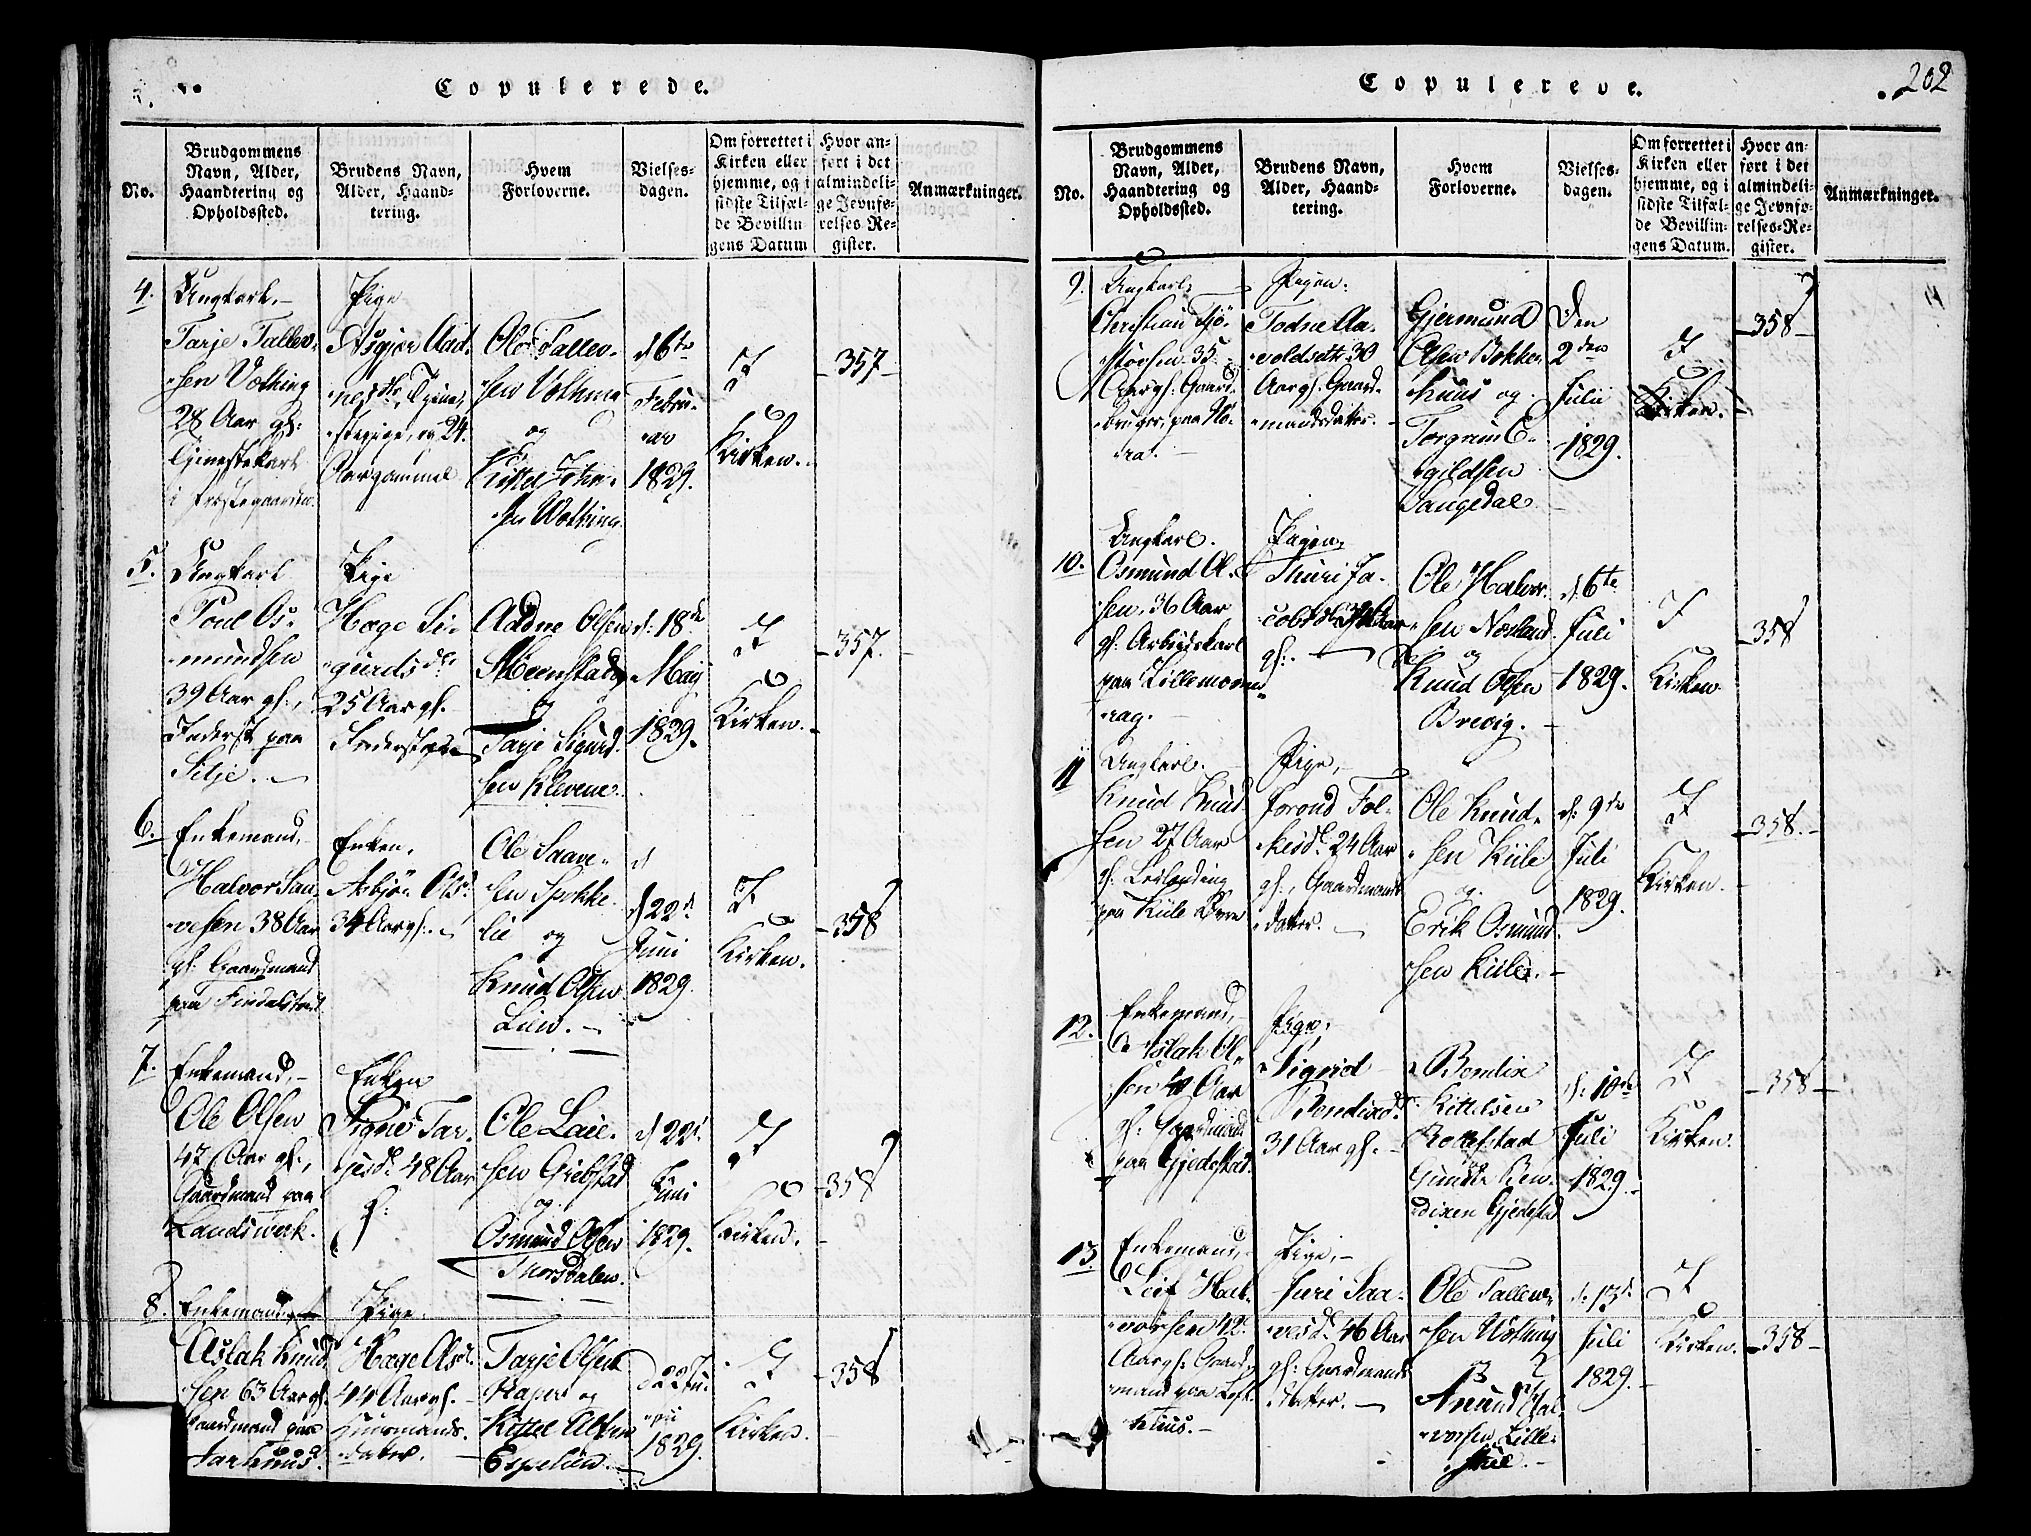 Copulerede.
No.
Brudgommens
Navn, Alder,
Haandtering og
Opholdssted.
Brudens Navn,
Alder, Haand-
tering.
Hvem
Forloverne.
Vielses-
dagen.
Om forrettet i
Kirken eller
hjemme, og i
sidste Tilfæl-
de Bevillin
gens Datum
Hvor an-
ført i det
almindeli-
ge Jevnfø-
relses-Re-
gister.
Anmærkninger.
4.
Ungkarl.
Tarje Tallev-
sen Vothing
28 Aar gl:
Tjenestekarl
i Præstegaarden.
Pige
Asgjer Aad-
nesdtr, Tjene-
stepige, og 24
Aar gammel
Ole Tallev-
sen Vothing
og
Kittel John-
sen Wothing.
d 6te
Febru-
ar
1829.
I
Kirken.
357
5.
Ungkarl
Poul Os-
mundsen
39 Aar gl.,
Inderst paa
Silje.
Pige
Hæge Si-
gurdsdtr
25 Aar gl.
Aadne Olsen
Meenstad
og
Tarje Sigurd-
sen Klevene.
d: 18de
Maij
1829.
I
Kirken.
357.
6.
Enkemand,
Halvor Saa-
vesen 38 Aar
gl: Gaardmand
paa Findalstad
Enken,
Asbjør Olsd.
34 Aar gl.
Ole Saave-
sen Spokke-
lie og
Knud Olsen
Lien.
d 22d
Juni
1829.
I
Kirken.
358
7.
Enkemand,
Ole Olsen
47 Aar gl.,
Gaardmand paa
Landsverk.
Enken
Signe Tar-
jesd. 48 Aar
gl:
Ole Laie-
sen Griebstad
og
Osmund Olsen
Thorsdalen.
d 22d
Juni
1829.
I
Kirken.
358
8.
Enkemand
Aslak Knud-
sen 63 Aar gl.
Gaardmand paa
Pige.
Hæge Asl.
44 Aar gl.
Huusmands-
datter.
Tarje Olsen
og
Kittel
Espelien.
d 22 Ju-
ni
1829.
I
Kirken.
358
Copulerede.
202
No.
Brudgommens
Navn, Alder,
Haandtering og
Opholdssted.
Brudens Navn,
Alder, Haand-
tering.
Hvem
Forloverne.
Vielses-
dagen.
Om forrettet i
Kirken eller
hjemme, og i
sidste Tilfæl-
de Bevillin-
gens Datum.
Hvor an-
ført i det
almindeli-
ge Jevnfø-
relses-Re-
gister.
Anmærkninger.
9.
Ungkarl.
Christian Tjø-
stovsen 35
Aar gl. Gaard-
bruger, paa Mo-
ra.
Pigen.
Todne Aa-
voldsdtr 30
Aar gl. Gaard-
mandsdatter.
Gjermund
Olsen Bakke-
huus og
Torgrim E-
gildsen
Saugedal
Den
2den
Julii
1829.
I
Kirken.
358
10.
Ungkarl.
Osmund Ol-
sen, 36 Aar
gl. Arbeidskarl
paa Lillemoven-
rag.
Pigen
Thuri Ja-
cobsd.
gl:
Ole Halvor-
sen Næsland
og
Knud Olsen
Brevig.
d. 6te
Juli
1829.
I
Kirken
358
11
Ungkarl.
Knud Knud-
sen 27 Aar
gl. Leilending
paa Kiile Øvre
Pige,
Jorond Fol-
kesd. 24 Aar
gl., Gaardmands
datter.
Ole Knud-
sen Kiile
og
Erik Osmund-
sen Kiile.
d: 9de
Juli
1829.
I
Kirken.
358.
12.
Enkemand,
Aslak Ol-
sen 40 Aar
gl: Gaardmand
paa Gjedestad.
Pige,
Sigrid
Bendixd.
31 Aar gl.
Bendix
Kittelsen
Gundt Ben-
dixen Gjedestad
d: 10de
Juli
1829.
I
Kirken.
358
13.
Enkemand,
Leif Hal-
vorsen 42
Aar gl: Gaard-
mand paa Loft-
huus.
Pige,
Juri Saa-
vesd. 46 Aar
gl: Gaardmands-
datter.
Ole Tallev-
sen Wothing
og
Anund Hal-
vorsen Lille-
hue.
d. 13d
Juli
1829.
I
Kirken.
358